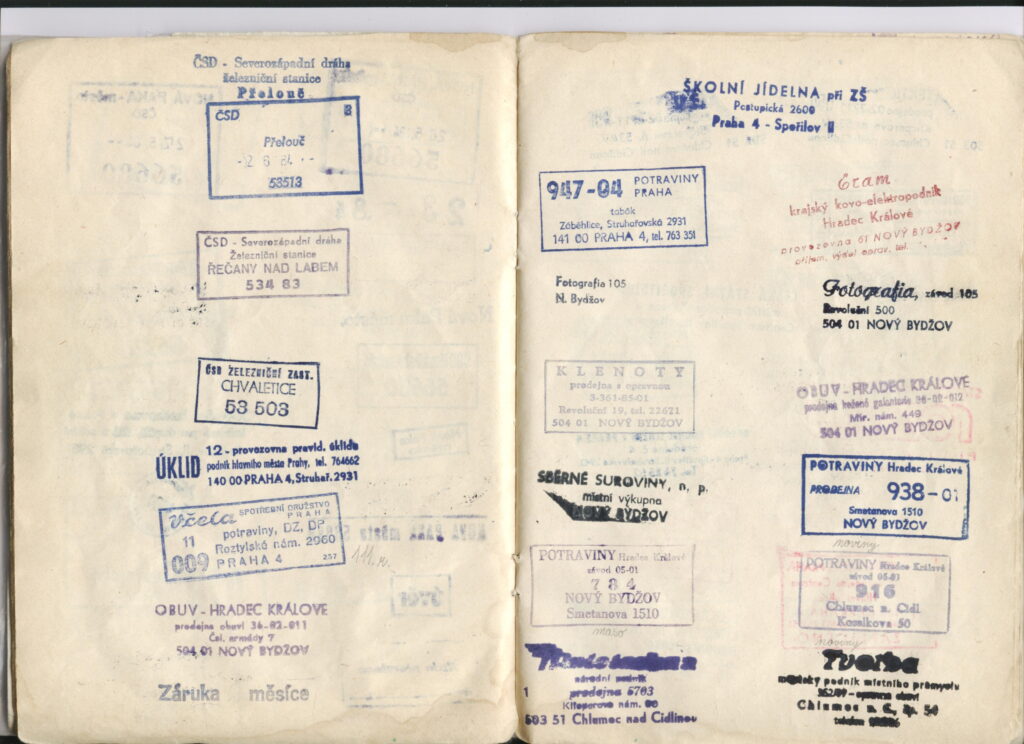 ČSD - Severozápadní dráha
železniční stanice
Přelouč
ČSD
Přelouč
53513
ČSD - Severozápadní dráha
Železniční stanice
ŘEČANY NAD LABEM
534 83
ČSD ŽELEZNIČNÍ ZAST.
CHVALETICE
53 503
ÚKLID
12 - provozovna pravid. úklidu
podnik hlavního města Prahy, tel. 764662
140 00 PRAHA 4, Struhař. 2931
Včela SPOTŘEBNÍ DRUŽSTVO
PRAHA
11 potraviny, DZ, DP
009 Roztylské nám. 2960
PRAHA 4 257
OBUV - HRADEC KRÁLOVÉ
prodejna obuvi 36-02-011
Čsl. armády 7
504 01 NOVÝ BYDŽOV
Záruka měsíce
ŠKOLNÍ JÍDELNA při ZŠ
Postupická 2600
Praha 4 - Spořilov II
947-04 POTRAVINY
PRAHA
tabák
Záběhlice, Struhařovská 2931
141 00 PRAHA 4, tel. 763 351
krajský kovo-elektropodnik
Hradec Králové
provozovna 61 NOVÝ BYDŽOV
Fotografia 105
N. Bydžov
Fotografia, závod 105
Revoluční 500
504 01 NOVÝ BYDŽOV
KLENOTY
prodejna s opravnou
3-361-85-01
Revoluční 19, tel. 22621
504 01 NOVÝ BYDŽOV
OBUV - HRADEC KRÁLOVÉ
prodejna kožené galanterie 36-02-012
Mír. nám. 449
504 01 NOVÝ BYDŽOV
SBĚRNÉ SUROVINY, n. p.
místní výkupna
NOVÝ BYDŽOV
POTRAVINY Hradec Králové
PRODEJNA 938-01
Smetanova 1510
NOVÝ BYDŽOV
noviny
POTRAVINY Hradec Králové
závod 05-01
784
NOVÝ BYDŽOV
Smetanova 1510
maso
POTRAVINY Hradec Králové
závod 05-03
916
Chlumec n. Cidl.
Kozelkova 50
noviny
národní podnik
prodejna 6703
Klicperovo nám.
503 51 Chlumec nad Cidlinou
Tvorba
podnik místního průmyslu
Chlumec n. C., čp. 50
telefon